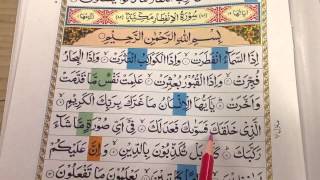 سُوْرَةُ الْاِنْفِطَارِ مَكِّيَّةٌ
بِسْمِ اللّٰهِ الرَّحْمٰنِ الرَّحِيْمِ
اِذَا السَّمَآءُ انْفَطَرَتْ وَاِذَا الْكَوَاكِبُ انْتَثَرَتْ وَاِذَا الْبِحَارُ
فُجِّرَتْ وَاِذَا الْقُبُوْرُ بُعْثِرَتْ عَلِمَتْ نَفْسٌ مَّا قَدَّمَتْ
وَاَخَّرَتْ يٰٓاَيُّهَا الْاِنْسَانُ مَا غَرَّكَ بِرَبِّكَ الْكَرِيْمِ
الَّذِيْ خَلَقَكَ فَسَوّٰىكَ فَعَدَلَكَ فِيْٓ اَيِّ صُوْرَةٍ مَّا شَآءَ
رَكَّبَكَ كَلَّا بَلْ تُكَذِّبُوْنَ بِالدِّيْنِ وَاِنَّ عَلَيْكُمْ
يَعْلَمُوْنَ مَا تَفْعَلُوْنَ